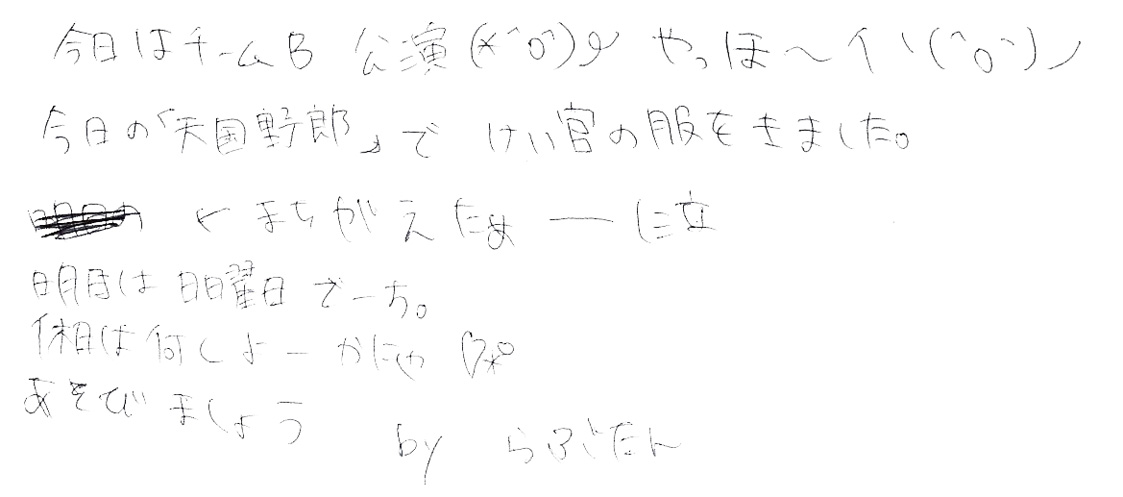 今日はチームB 公演(*^o^)♪ やっほ〜イヽ(^o^)ノ
今日の「天国野郎」で けい官の服をきました。
← まちがえたぁ ー に立
明日は 日曜日 でーち。
休日は何しよーかにゃ ♡*°
あそびましょう
by らぶたん